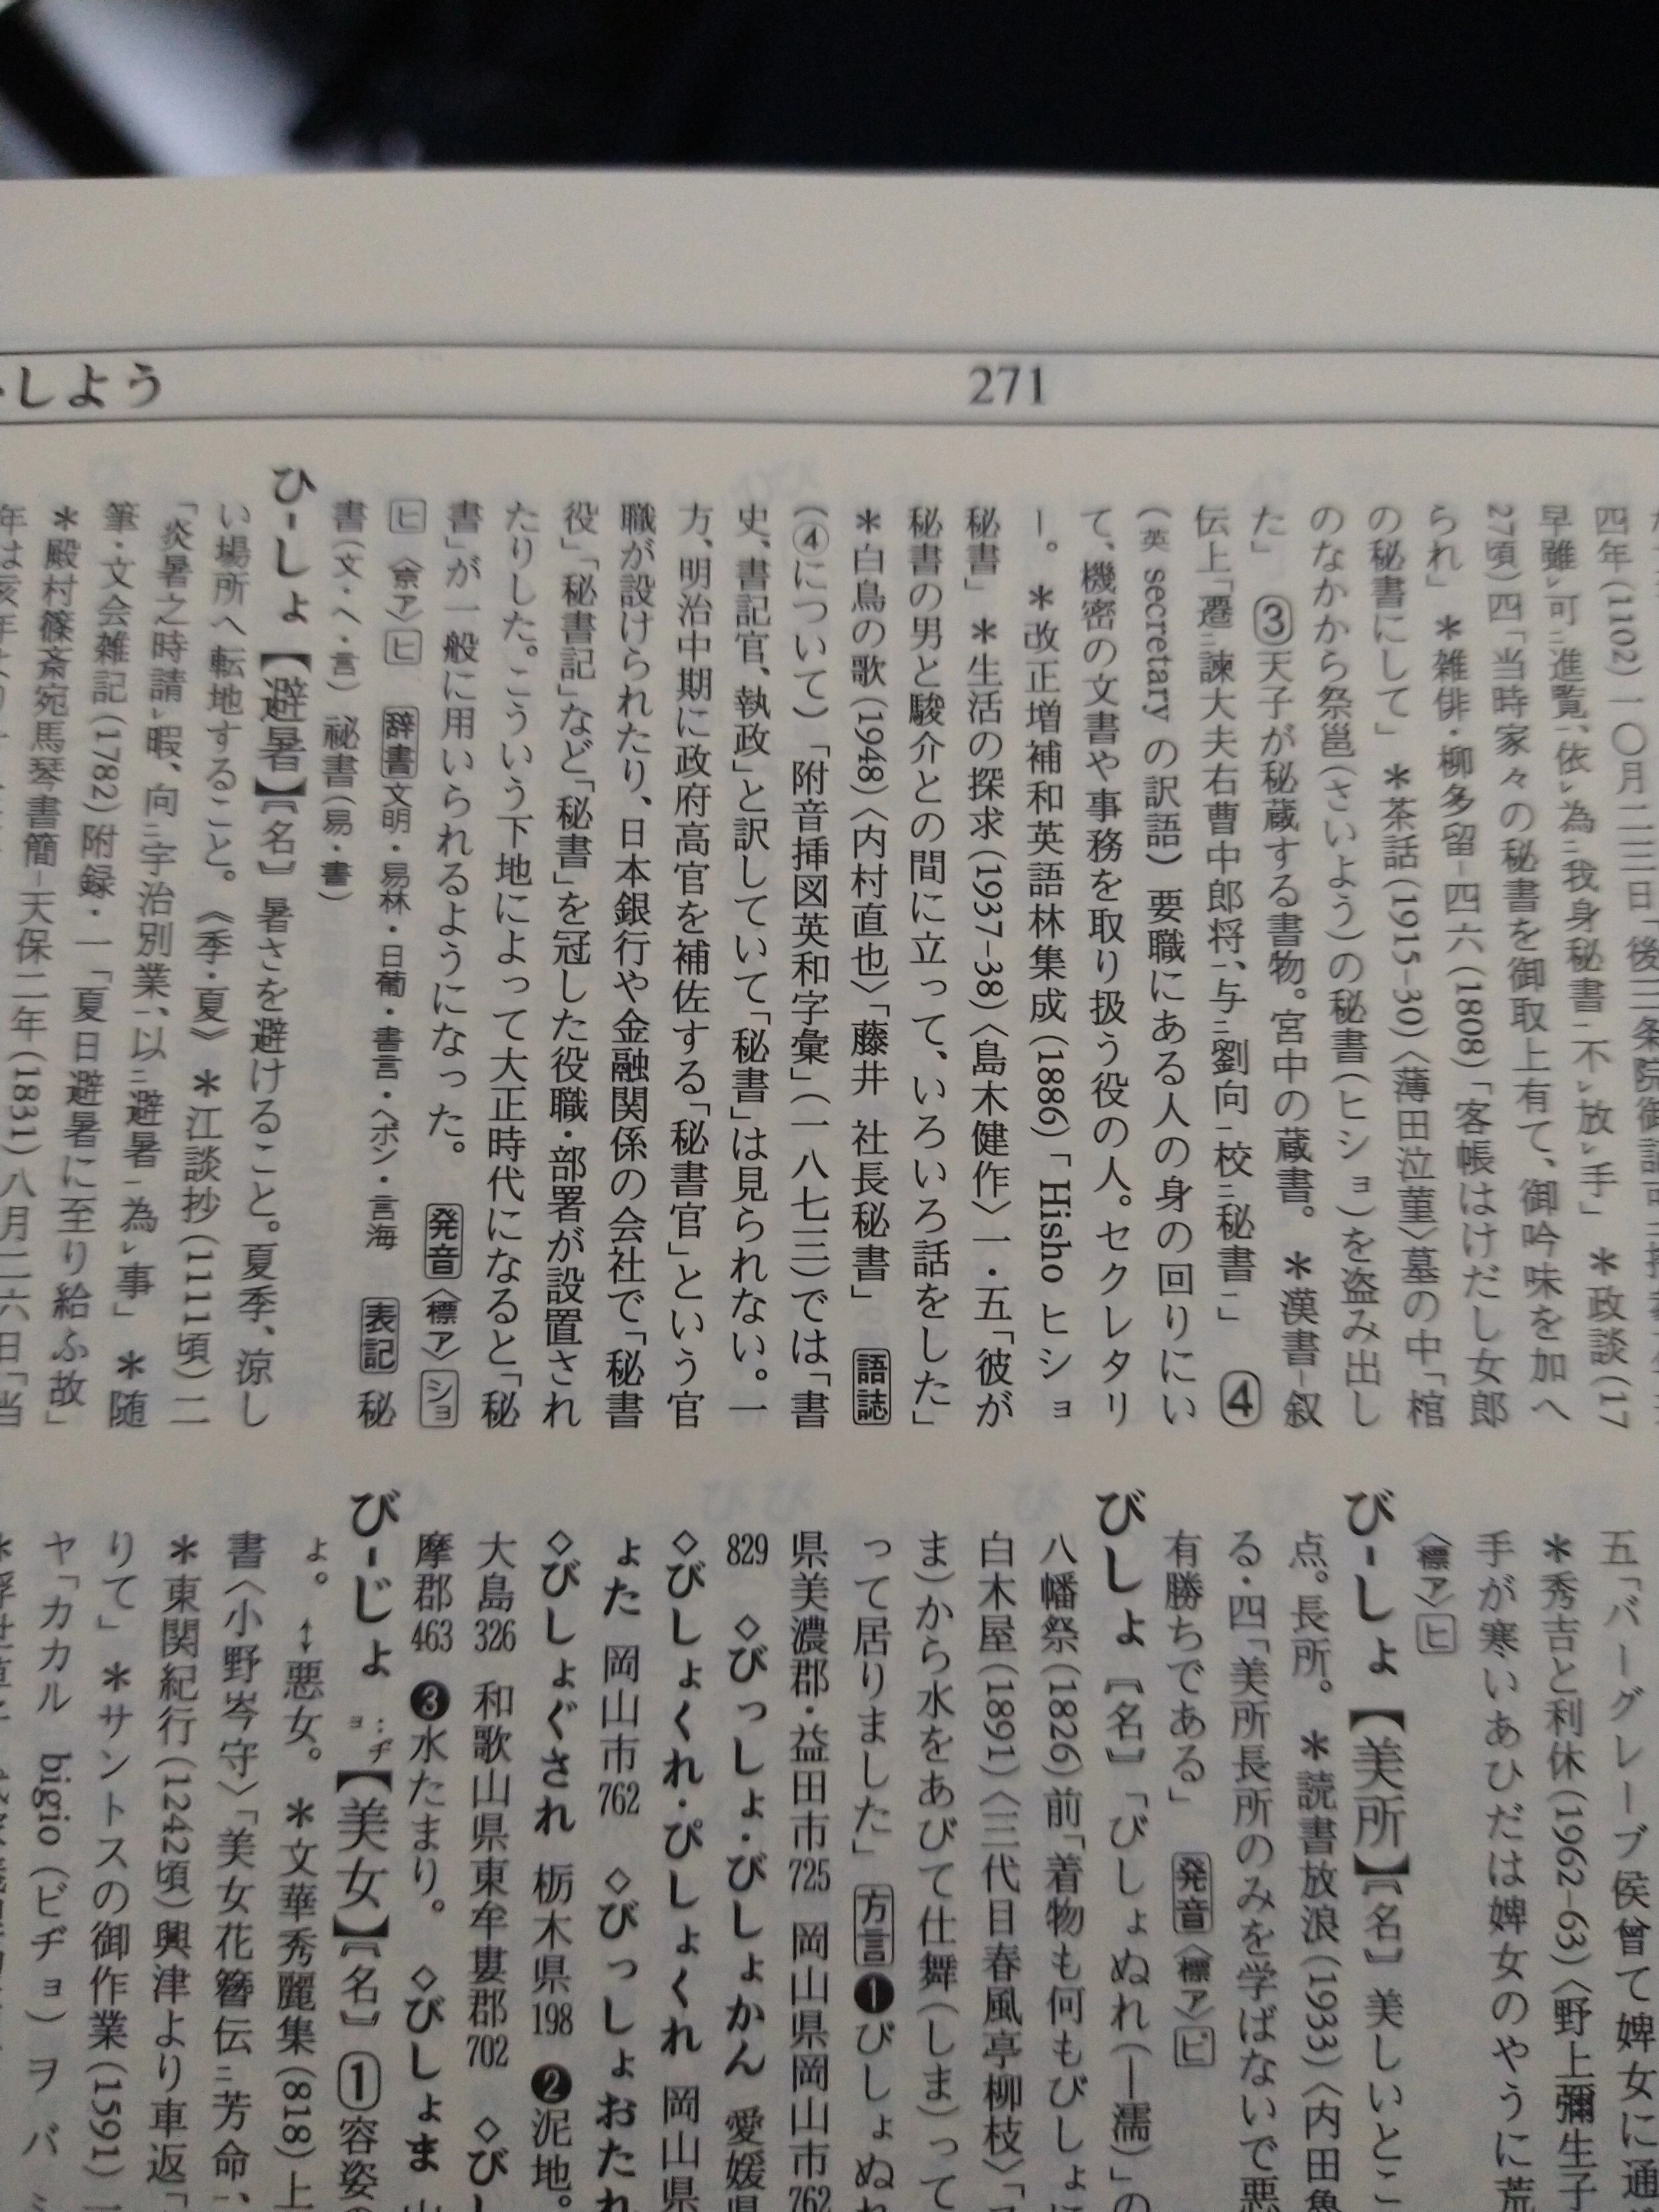 しよう
271
四年(1102)一〇月二三日「後三条院御
早雖レ可二進覧一、依レ為二我身秘書一不レ放レ手」 *政談(17
27頃)四「当時家々の秘書を御取上有て、御吟味を加へ
られ」 *雑俳・柳多留-四六(1808)「客帳はけだし女郎
の秘書にして」 *茶話(1915-30)〈薄田泣菫〉墓の中「棺
のなかから祭邕(さいよう)の秘書(ヒショ)を盗み出し
た」 ③天子が秘蔵する書物。宮中の蔵書。 *漢書-叙
伝上「遷二諫大夫右曹中郎将一、与二劉向一校二秘書一」 ④
(英 secretary の訳語) 要職にある人の身の回りにい
て、機密の文書や事務を取り扱う役の人。セクレタリ
ー。 *改正増補和英語林集成(1886)「Hisho ヒショ
秘書」 *生活の探求(1937-38)〈島木健作〉一・五「彼が
秘書の男と駿介との間に立って、いろいろ話をした」
*白鳥の歌(1948)〈内村直也〉「藤井 社長秘書」 語誌
(④について) 「附音挿図英和字彙」(一八七三)では「書
史、書記官、執政」と訳していて「秘書」は見られない。一
方、明治中期に政府高官を補佐する「秘書官」という官
職が設けられたり、日本銀行や金融関係の会社で「秘書
役」「秘書記」など「秘書」を冠した役職・部署が設置され
たりした。こういう下地によって大正時代になると「秘
書」が一般に用いられるようになった。 発音〈標ア〉ショ
ヒ 〈京ア〉ヒ 辞書文明・易林・日葡・書言・ヘボン・言海 表記 秘
書(文・ヘ・言) 祕書(易・書)
ひ-しょ【避暑】〘名〙 暑さを避けること。夏季、涼し
い場所へ転地すること。《季・夏》 *江談抄(1111頃)二
「炎暑之時請レ暇、向二宇治別業一、以二避暑一為レ事」 *随
筆・文会雑記(1782)附録・一「夏日避暑に至り給ふ故」
*殿村篠斎宛馬琴書簡-天保二年(1831)八月二六日「当
五「バーグレーブ侯曾て婢女に通
*秀吉と利休(1962-63)〈野上彌生子
手が寒いあひだは婢女のやうに荒
〈標ア〉ヒ
び-しょ【美所】〘名〙 美しいとこ
点。長所。 *読書放浪(1933)〈内田魯
る・四「美所長所のみを学ばないで悪
有勝ちである」 発音〈標ア〉ビ
びしょ 〘名〙 「びしょぬれ(―濡)」の
八幡祭(1826)前「着物も何もびしょに
白木屋(1891)〈三代目春風亭柳枝〉「
ま)から水をあびて仕舞(しま)って
って居りました」 方言❶びしょぬれ
県美濃郡・益田市725 岡山県岡山市762
829 ◇びっしょ・びしょかん 愛媛県
◇びしょくれ・ぴしょくれ 岡山県
ょた 岡山市762 ◇びっしょおたれ
◇びしょぐされ 栃木県198 ❷泥地。
大島326 和歌山県東牟婁郡702 ◇び
摩郡463 ❸水たまり。 ◇びしょま
び-じょ ‥ヂョ【美女】〘名〙 ①容姿の
ょ。 ↔悪女。 *文華秀麗集(818)上
書〈小野岑守〉「美女花簪伝二芳命一、
*東関紀行(1242頃)興津より車返「
りて」 *サントスの御作業(1591)一
ヤ「カカル bigio(ビヂョ) ヲ バ